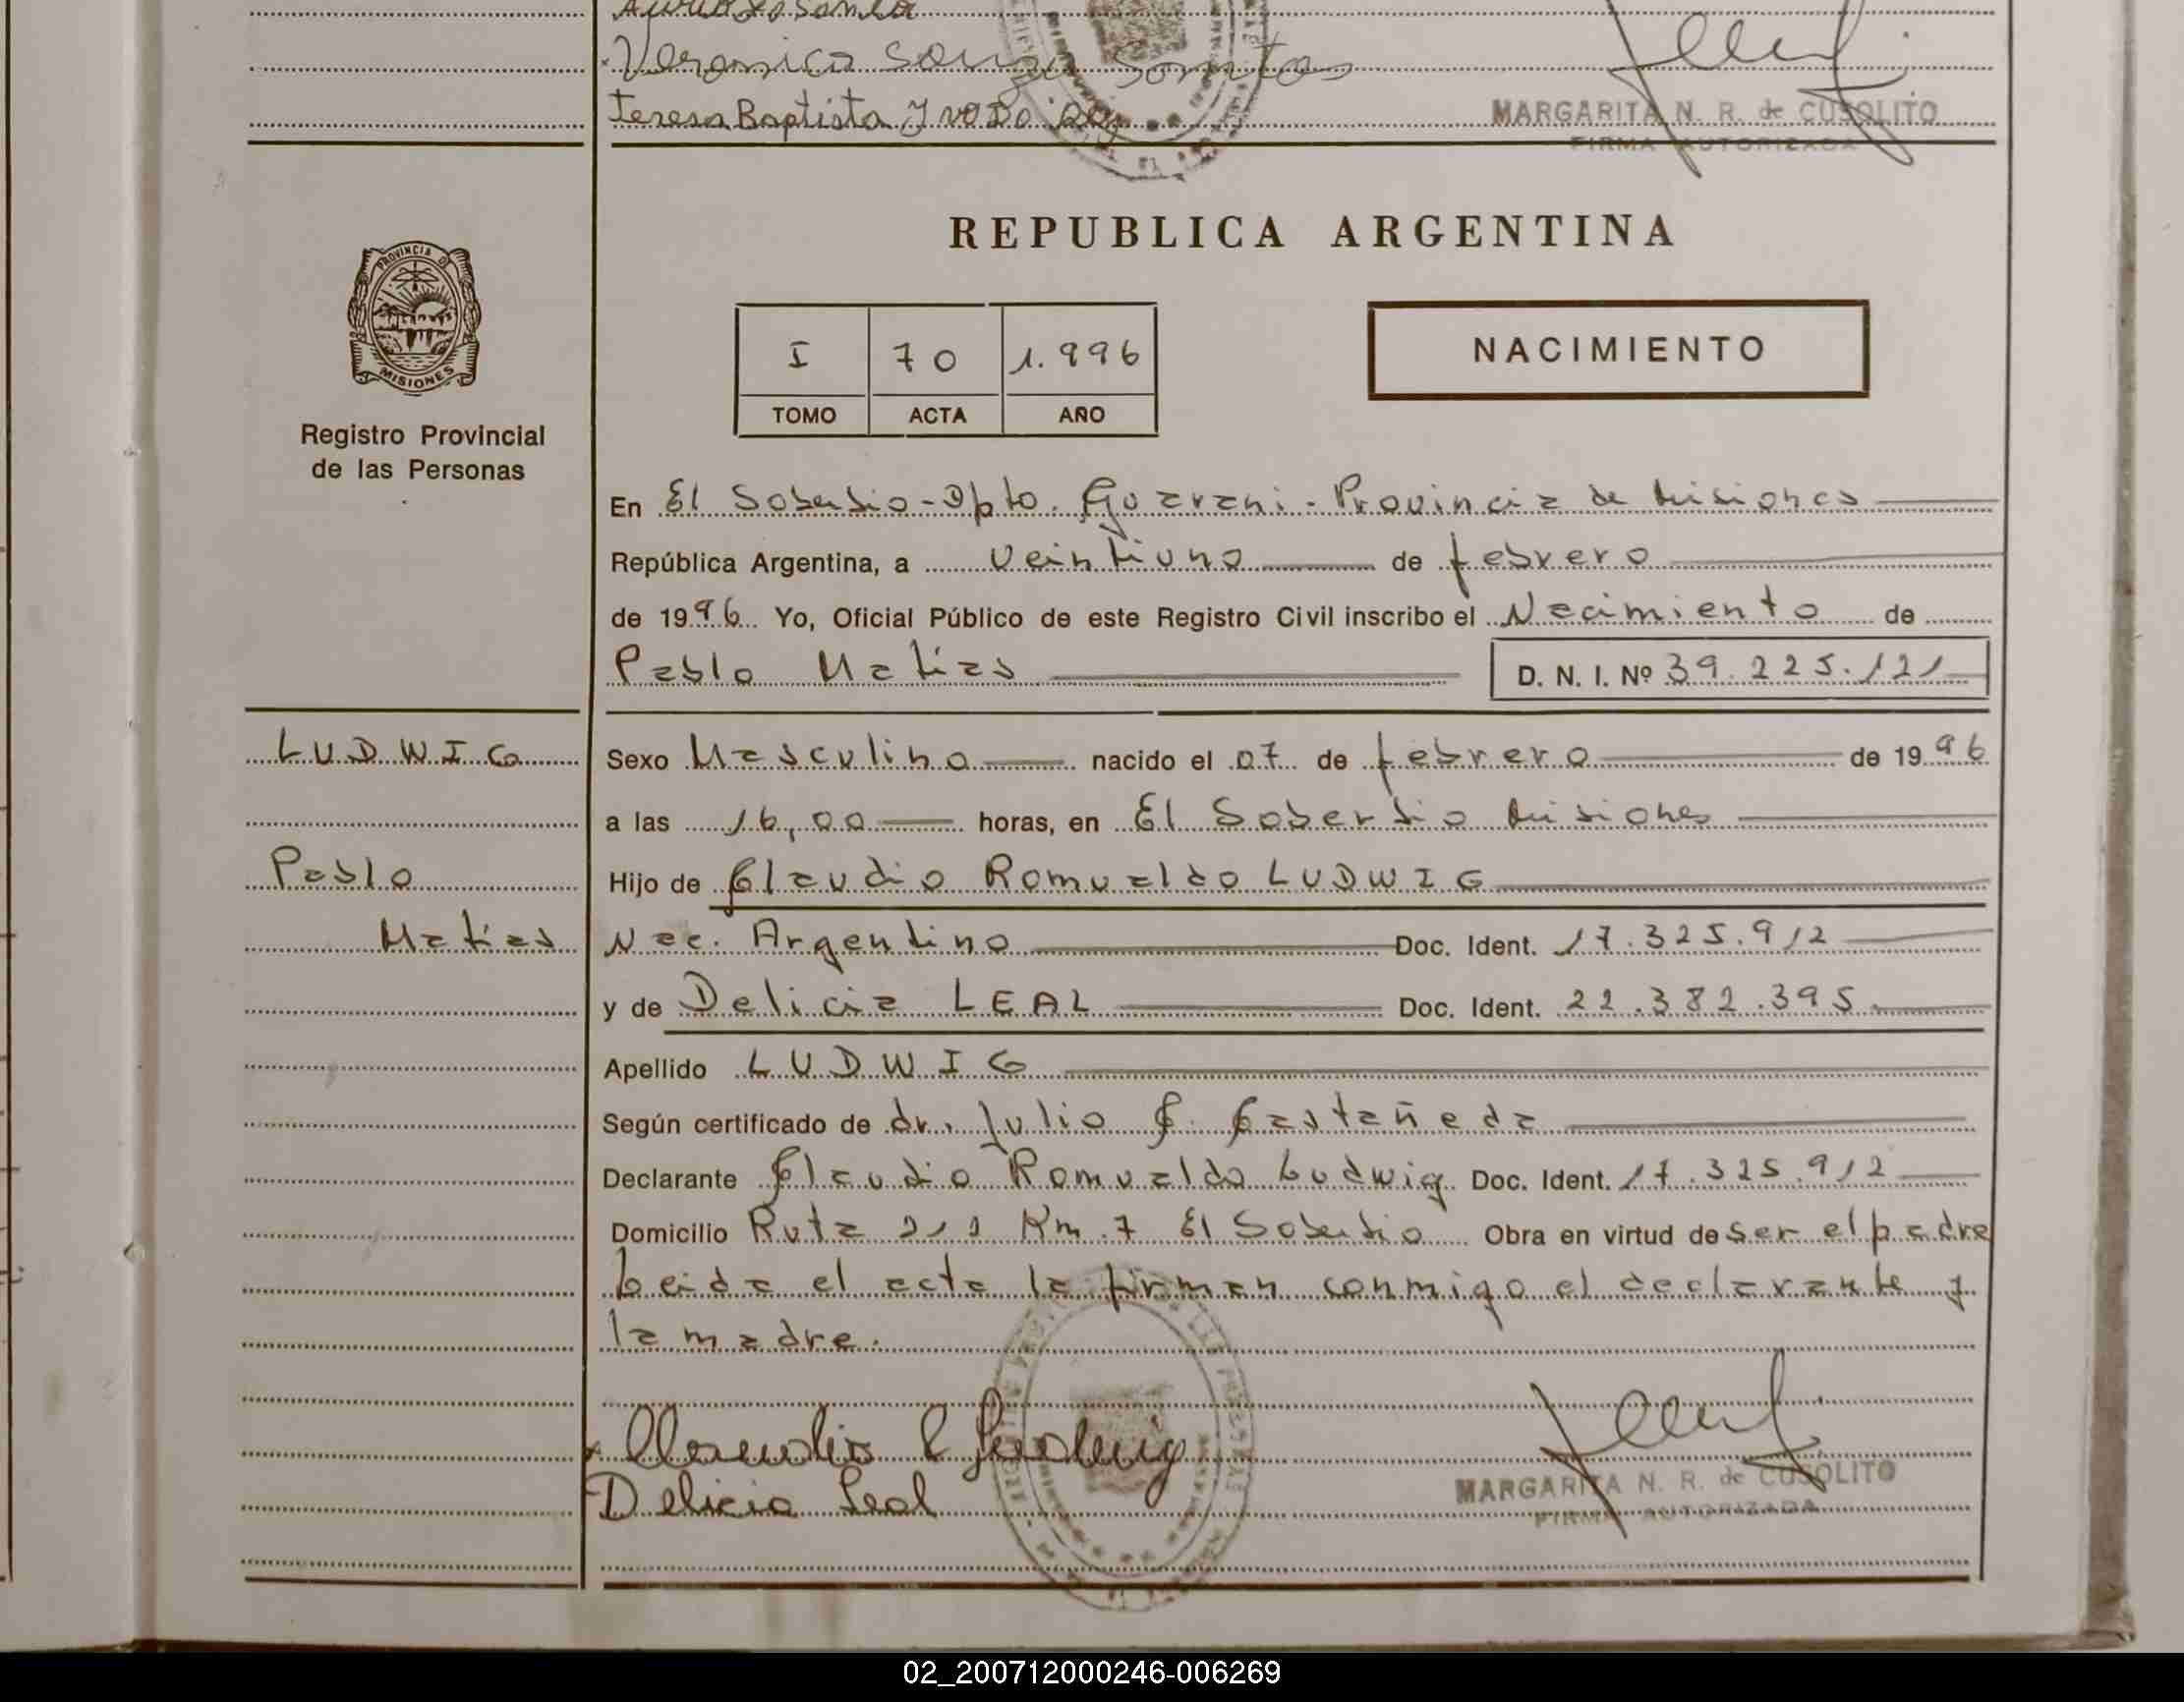 Veronica Souza Santos
Teresa Baptista
MARGARITA N. R. de CUSOLITO
FIRMA AUTORIZADA
REPUBLICA ARGENTINA
PROVINCIA DE
MISIONES
Registro Provincial
de las Personas
I 70 1.996
TOMO ACTA AÑO
NACIMIENTO
En El Soberbio - Dpto. Guarani - Provincia de Misiones
República Argentina, a veintiuno de febrero
de 1996 Yo, Oficial Público de este Registro Civil inscribo el Nacimiento de
Pablo Matias D. N. I. Nº 39.225.121
LUDWIG
Pablo
Matias
Sexo Masculino nacido el 07 de febrero de 1996
a las 16,00 horas, en El Soberbio Misiones
Hijo de Claudio Romualdo LUDWIG
Nac. Argentino Doc. Ident. 17.325.912
y de Delicia LEAL Doc. Ident. 22.382.395.
Apellido LUDWIG
Según certificado de dr. Julio C. Castañeda
Declarante Claudio Romualdo Ludwig Doc. Ident. 17.325.912
Domicilio Ruta Km. 7 El Soberbio Obra en virtud de ser el padre
Leida el acta la firman conmigo el declarante y
la madre.
Claudio R Ludwig
Delicia Leal
MARGARITA N. R. de CUSOLITO
FIRMA AUTORIZADA
02_200712000246-006269